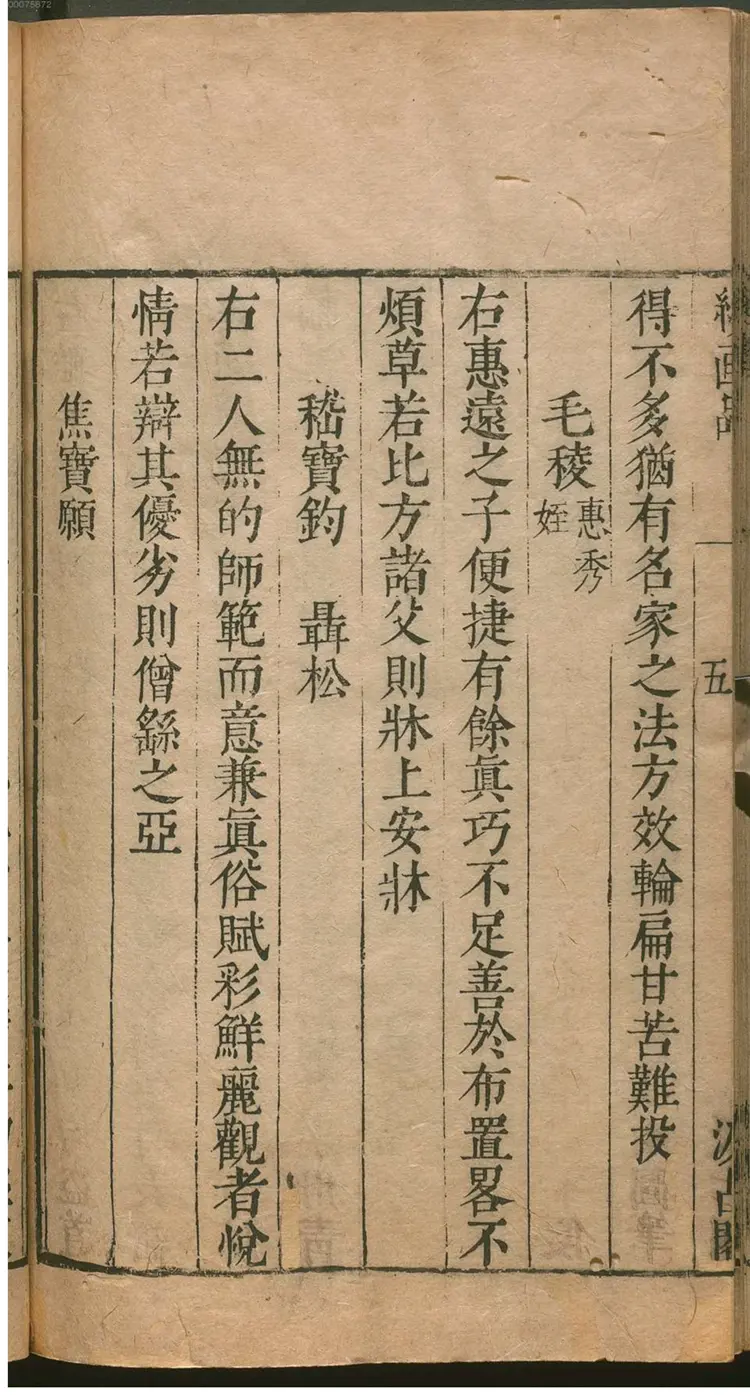 00075872
續画品
五
汲古閣
得不多猶有名家之法方效輪扁甘苦難投
毛稜 惠秀姪
右惠遠之子便捷有餘眞巧不足善於布置畧不
煩草若比方諸父則牀上安牀
嵇寶鈞 聶松
右二人無的師範而意兼眞俗賦彩鮮麗觀者悅
情若辯其優劣則僧繇之亞
焦寶願